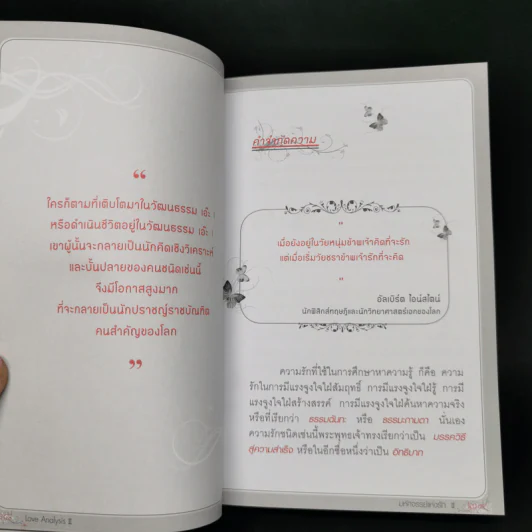 “
ใครก็ตามที่เติบโตมาในวัฒนธรรม เอ๊ะ !
หรือดำเนินชีวิตอยู่ในวัฒนธรรม เอ๊ะ !
เขาผู้นั้นจะกลายเป็นนักคิดเชิงวิเคราะห์
และบั้นปลายของคนชนิดเช่นนี้
จึงมีโอกาสสูงมาก
ที่จะกลายเป็นนักปราชญ์ราชบัณฑิต
คนสำคัญของโลก
”
Love Analysis II
คำจำกัดความ
“
เมื่อยังอยู่ในวัยหนุ่มข้าพเจ้าคิดที่จะรัก
แต่เมื่อเริ่มวัยชราข้าพเจ้ารักที่จะคิด
”
อัลเบิร์ต ไอน์สไตน์
นักฟิสิกส์ทฤษฎีและนักวิทยาศาสตร์เอกของโลก
ความรักที่ใช้ในการศึกษาหาความรู้ ก็คือ ความ
รักในการมีแรงจูงใจใฝ่สัมฤทธิ์ การมีแรงจูงใจใฝ่รู้ การมี
แรงจูงใจใฝ่สร้างสรรค์ การมีแรงจูงใจใฝ่ค้นหาความจริง
หรือที่เรียกว่า ธรรมฉันทะ หรือ ธรรมะกามตา นั่นเอง
ความรักชนิดเช่นนี้พระพุทธเจ้าทรงเรียกว่าเป็น มรรควิธี
สู่ความสำเร็จ หรือในอีกชื่อหนึ่งว่าเป็น อิทธิบาท